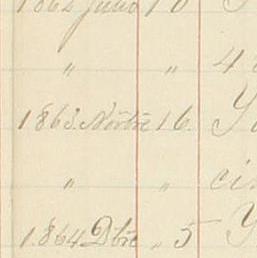 1862 Julio 10
" " 4
1863. Novbre 16. Y
" " ci
1.864 Dbre " 5 Y